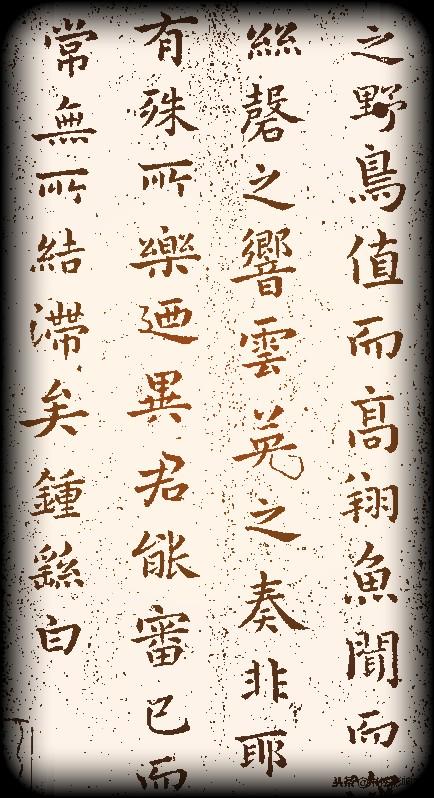 之野鳥值而高翔魚聞而
絲磬之響雲英之奏非耶
有殊所樂迺異君能審己而
常無所結滯矣鍾繇白